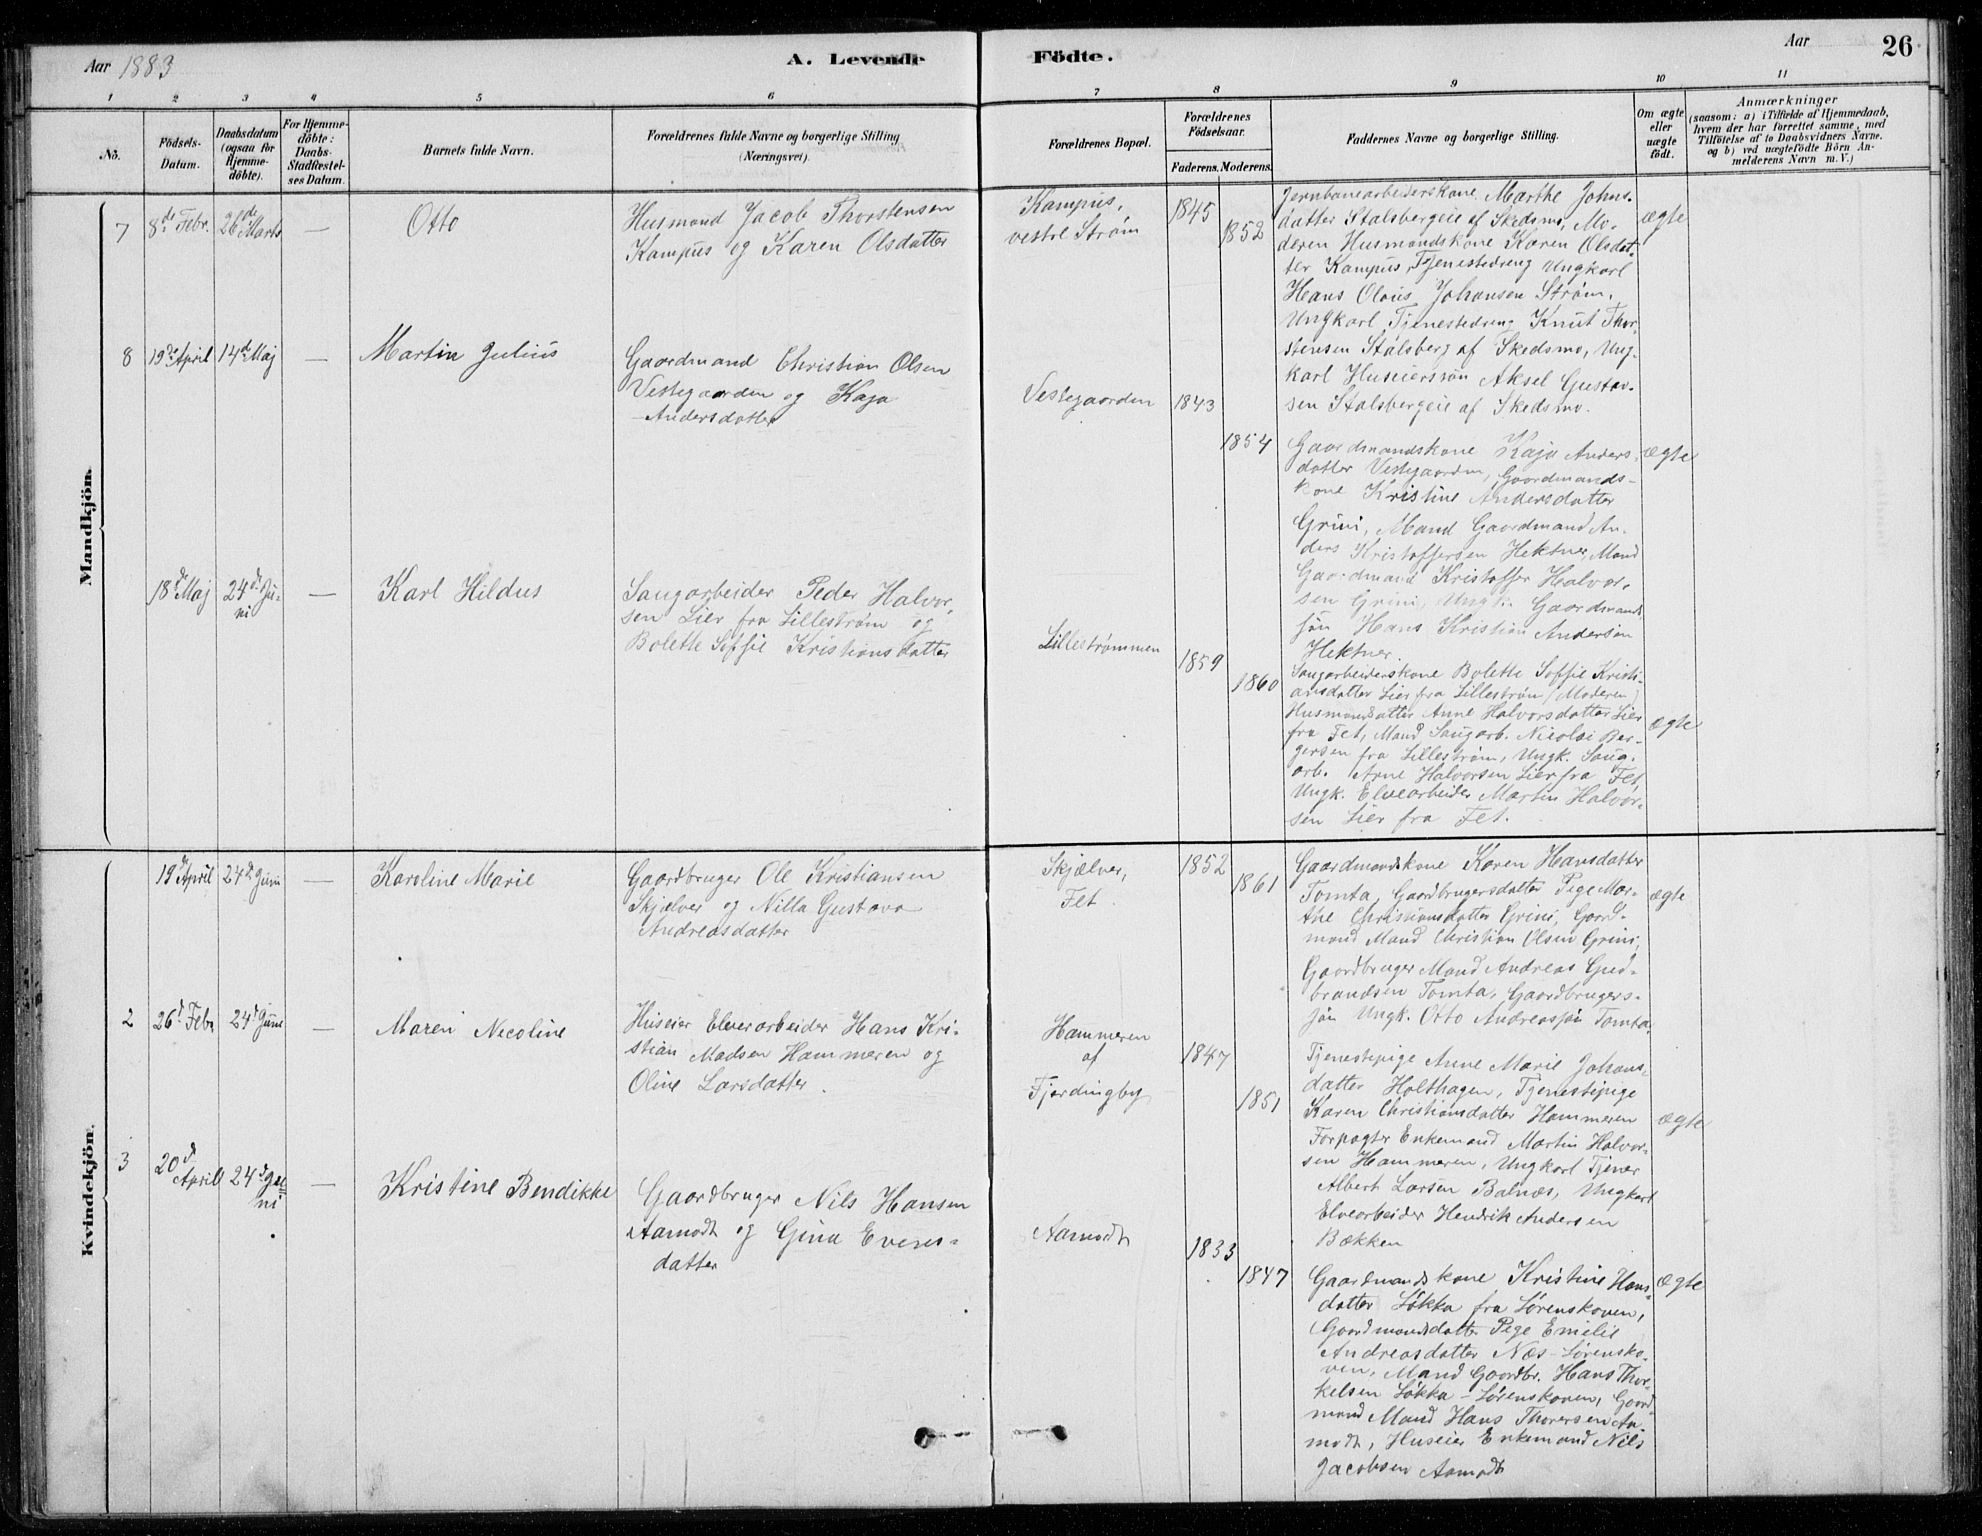 Aar 1883
A. Levende
Födte.
Aar
26
1 2 3 4 5 6 7 8 9 10 11
No.
Födsels-
Datum.
Daabsdatum
(ogsaa for
Hjemme-
döbte).
For Hjemme-
döbte:
Daabs-
Stadfæstel-
ses Datum.
Barnets fulde Navn.
Forældrenes fulde Navne og borgerlige Stilling
(Næringsvei).
Forældrenes Bopæl.
Forældrenes
Födselsaar.
Faderens. Moderens.
Faddernes Navne og borgerlige Stilling.
Om ægte
eller
uægte
födt.
Anmærkninger
(saasom: a) i Tilfælde af Hjemmedaab,
hvem der har forrettet samme, med
Tilföielse af to Daabsvidners Navne.
og b) ved uægtefödte Börn An-
melderens Navn m. V.)
Mandkjön.
7
8de Febr.
26de Marts
—
Otto
Husmand Jacob Thorstensen
Kampus og Karen Olsdatter
Kampus,
vestre Strøm
1845
1852
Jernbanearbeiderskone Marthe Johns-
datter Stalsbergeie af Skedsmo, Mo-
deren Husmandskone Karen Olsdat-
ter Kampus, Tjenestedreng Ungkarl
Hans Olaus Johansen Strøm,
Ungkarl Tjenestedreng Knut Thor-
stensen Stalsberg af Skedsmo, Ung-
karl Huseierssøn Aksel Gustav-
sen Stalsbergeie af Skedsmo.
ægte
8
19de April
14de Maj
—
Martin Julius
Gaardmand Christian Olsen
Vestegaarden og Kaja
Andersdatter
Vestegaarden
1843
1854
Gaardmandskone Kaja Anders-
datter Vestegaarden, Gaardmands-
kone Kristine Andersdatter
Grini, Mand Gaardmand An-
ders Kristoffersen Hektner, Mand
Gaardmand Kristoffer Halvor-
sen Grini, Ungk. Gaardmands
søn Hans Kristian Andersen
Hektner.
ægte
18de Maj
24de Ju-
ni
—
Karl Hildus
Saugarbeider Peder Halvor-
sen Lier fra Lillestrøm og
Bolette Soffie Kristians datter
Lillestrømmen
1859
1860
Saugarbeiderskone Bolette Soffie Kristi-
ansdatter Lier fra Lillestrøm (Moderen)
Husmandsdatter Anne Halvorsdatter Lier
fra Fet, Mand Saugarb. Nicolai Ber-
gersen fra Lillestrøm, Ungk. Saug-
arb. Arne Halvorsen Lier fra Fet,
Ungk. Elvearbeider Martin Halvor-
sen Lier fra Fet.
ægte
Kvindekjön.
19de April
24de Juni
—
Karoline Marie
Gaardbruger Ole Kristiansen
Skjælver og Nilla Gustava
Andreasdatter
Skjælver,
Fet
1852
1861
Gaardmandskone Karen Hansdatter
Tomta, Gaardbrugersdatter Pige Mar-
the Christiansdatter Grini, Gaard-
mand Mand Christian Olsen Grini,
Gaardbruger Mand Andreas Gud-
brandsen Tomta, Gaardbrugers-
søn Ungk. Otto Andreassøn Tomta.
ægte
2
26d Febr
24d Juni
—
Maren Nicoline
Huseier Elvearbeider Hans Kri-
stian Madsen Hammeren og
Oline Larsdatter.
Hammeren
af
Fjerdingby
1847
1851
Tjenestepige Anne Marie Johans-
datter Holthagen, Tjenestepige
Karen Christiansdatter Hammeren
Forpagter Enkemand Martin Halvor-
sen Hammeren, Ungkarl Tjener
Albert Larsen Balnæs, Ungkarl
Elvearbeider Hendrik Andersen
Bækken
ægte
3
20d
April
24d Ju-
ni
—
Kristine Bendikke
Gaardbruger Nils Hansen
Aamodt og Gina Evens-
datter
Aamodt
1833
1847
Gaardmandskone Kristine Hans-
datter Løkka fra Sørenskoven,
Gaardmandsdatter Pige Emelie
Andreasdatter Næs-Sørensko-
ven, Mand Gaardbr. Hans Thor-
kelsen Løkka-Sørenskoven, Gaard
mand Mand Hans Thorersen Aa
modt, Huseier Enkemand Nils
Jacobsen Aamodt
ægte